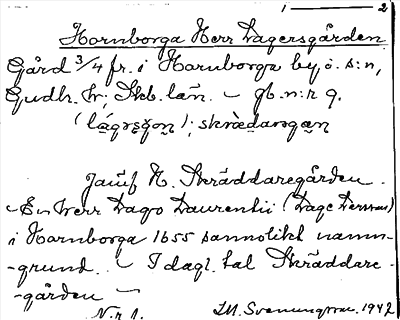 1 — 2
Hornborga Herr Dagersgården
Gård 3/4 fr. i Hornborga by o. s:n,
Gudh. hr; Skb. län. – gb. n:r 9.
Jämf H. Skräddaregården.
– En herr Dago Laurentii
i Hornborga 1655 sannolikt namn-
-grund. – I dagl. tal Skräddare-
-gården –
N:r 1. I.M. Svenungsson. 1942